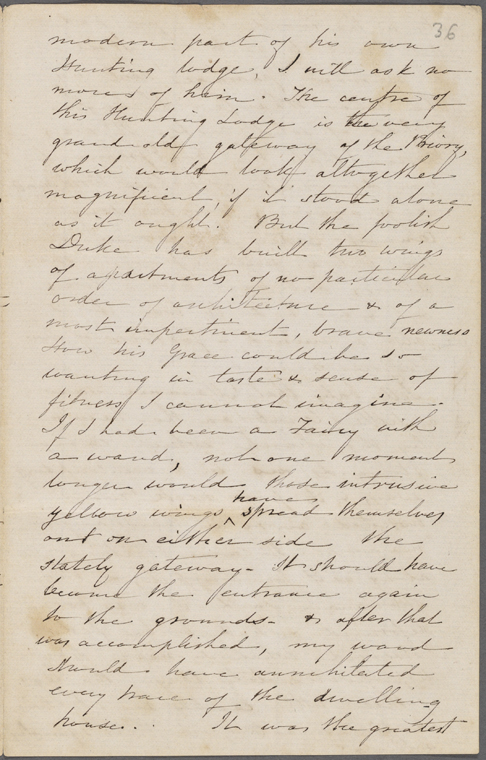 36
modern part of his own
Hunting lodge, I will ask no
more of him. The centre of
this Hunting Lodge is the very
grand old gateway of the Priory,
which would look altogether
magnificent, if it stood alone
as it ought. But the foolish
Duke has built two wings
of apartments of no particular
order of architecture & of a
most impertinent, brave newness
How his Grace could be so
wanting in taste & sense of
fitness I cannot imagine.
If I had been a Fairy with
a wand, not one moment
longer would those intrusive
yellow wings have spread themselves
out on either side the
stately gateway. It should have
become the entrance again
to the grounds. & after that
was accomplished, my wand
should have annihilated
every trace of the dwelling
house. It was the greatest